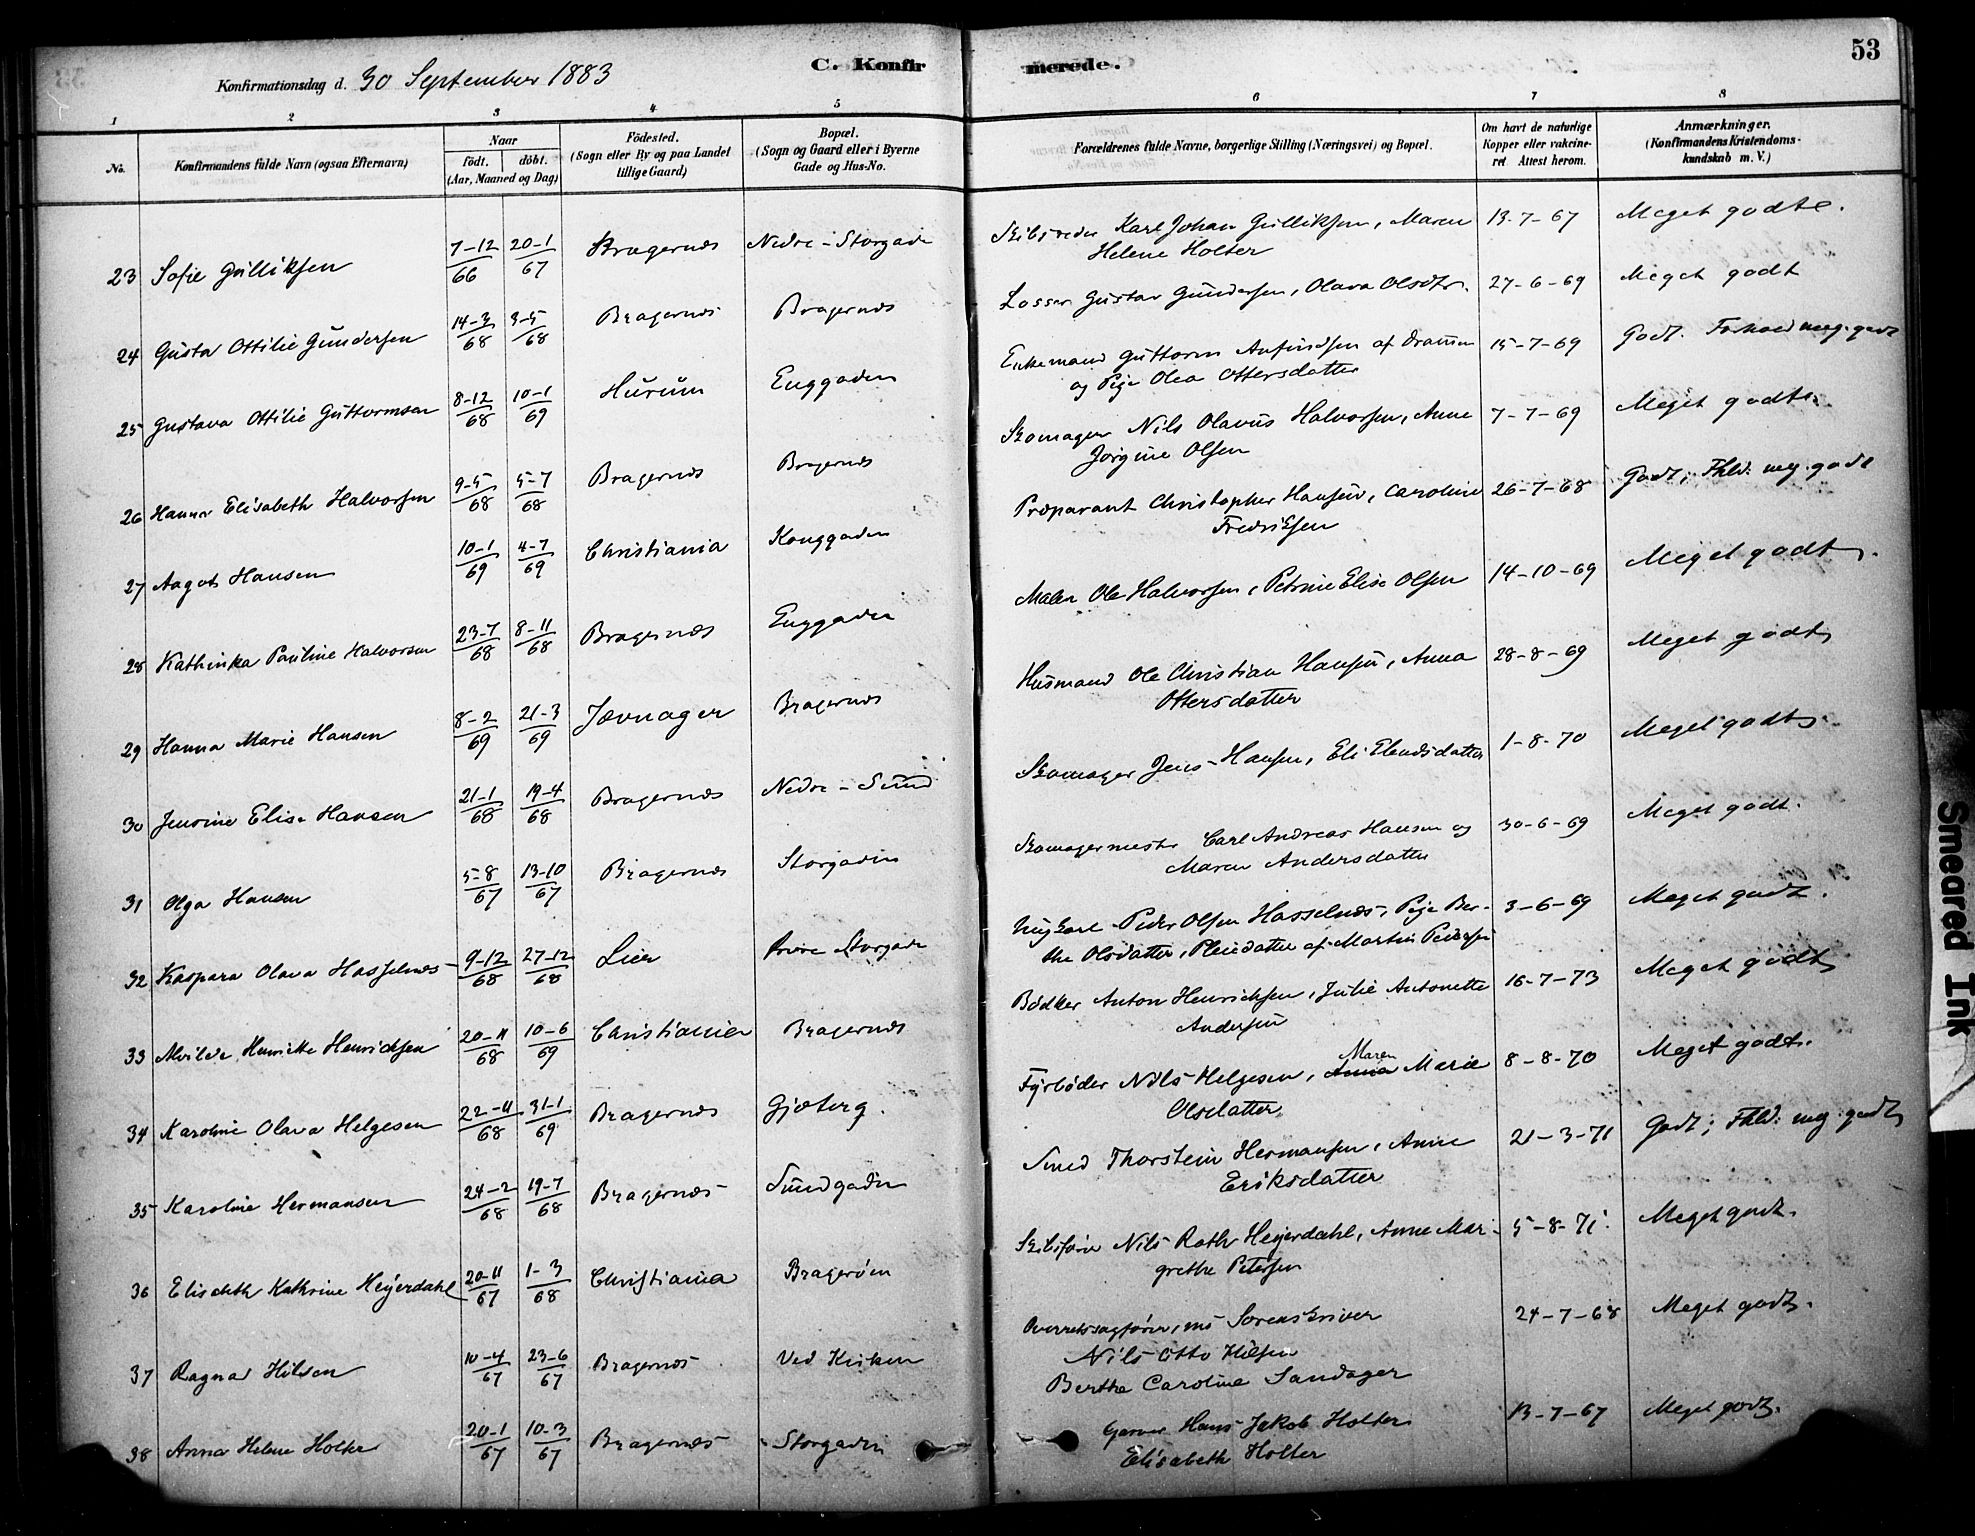 53
C. Konfirmerede.
Konfirmationsdag d. 30 September 1883
1 2 3 4 5 6 7 8
No.
Konfirmandens fulde Navn (ogsaa Efternavn)
Naar
födt. döbt.
(Aar, Maaned og Dag)
Födested.
(Sogn eller By og paa Landet
tillige Gaard)
Bopæl.
(Sogn og Gaard eller i Byerne
Gade og Hus-No.
Forældrenes fulde Navne, borgerlige Stilling (Næringsvei) og Bopæl.
Om havt de naturlige
Kopper eller vakcineret Attest herom.
Anmærkninger.
(Konfirmandens Kristendomskundskab m. V.)
23 Sofie Gulliksen 7-12/66 20-1/67 Bragernæs Nedre-Storgade Skibsreder Karl Johan Gulliksen, Maren 13-7-67 Meget godt.
Helene Holter
24 Gusta Ottilie Gundersen 14-3/68 3-5/68 Bragernæs Bragernæs Losser Gustav Gundersen, Olava Olsdtr. 27-6-69 Meget godt
25 Gustava Ottilie Guttormsen 8-12/68 10-1/69 Hurum Enggaden Enkemand Guttorm Anfindsen af Drammen 15-7-69 Godt. Forhold meg. godt
og Pige Olea Ottersdatter
26 Hanna Elisabeth Halvorsen 9-5/68 5-7/68 Bragernæs Bragernæs Skomager Nils Olavus Halvorsen, Anne 7-7-69 Meget godt.
Jørgine Olsen
27 Aagot Hansen 10-1/69 4-7/69 Christiania Konggaden Præparant Christopher Hansen, Caroline 26-7-68 Godt; Fhld. meg. godt
Fredriksen
28 Kathinka Pauline Halvorsen 23-7/68 8-11/68 Bragernæs Enggaden Maler Ole Halvorsen, Petrine Elise Olsen 14-10-69 Meget godt.
29 Hanna Marie Hansen 8-2/69 21-3/69 Jævnager Bragernæs Husmand Ole Christian Hansen, Anna 28-8-69 Meget godt
Ottersdatter
30 Jensine Elise Hansen 21-1/68 19-4/68 Bragernæs Nedre-Sund Skomager Jens Hansen, Eli Elendsdatter 1-8-70 Meget godt.
31 Olga Hansen 5-8/67 13-10/67 Bragernæs Storgaden Skomagermester Carl Andreas Hansen og 30-6-69 Meget godt.
Maren Andersdatter
32 Kaspara Olava Hasselnæs 9-12/68 27-12/68 Lier Øvre Storgade Ungkarl Peder Olsen Hasselnæs, Pige Ber- 3-6-69 Meget godt.
the Olsdatter, Pleiedatter af Martin Pedersen
33 Alvilde Henriette Henrichsen 20-11/68 10-6/69 Christiania Bragernæs Bødker Anton Henrichsen, Julie Antonette 16-7-73 Meget godt
Andersen
34 Karoline Olava Helgesen 22-11/68 31-1/69 Bragernæs Gjetberg. Fyrbøder Nils Helgesen, Maren Marie 8-8-70 Meget godt.
Olsdatter
35 Karoline Hermansen 24-2/68 19-7/68 Bragernæs Sundgaden Smed Thorstein Hermansen, Anne 21-3-71 Godt; Fhld. meg godt
Eriksdatter
36 Elisabeth Kathrine Heyerdahl 20-11/67 1-3/68 Christiania Bragerøen Skibsfører Nils Roth Heyerdahl, Anne Mar- 5-8-71. Meget godt.
grethe Petersen
37 Ragna Hilsen 10-4/67 23-6/67 Bragernæs Ved Kirken Overretssagfører, nu Sorenskriver 24-7-68 Meget godt.
Nils Otto Hilsen
Berthe Caroline Sandager
38 Anna Helene Holter 20-1/67 10-3/67 Bragernæs Storgaden Garver Hans Jakob Holter 13-7-67 Meget godt.
Elisabeth Holter
Smeared Ink